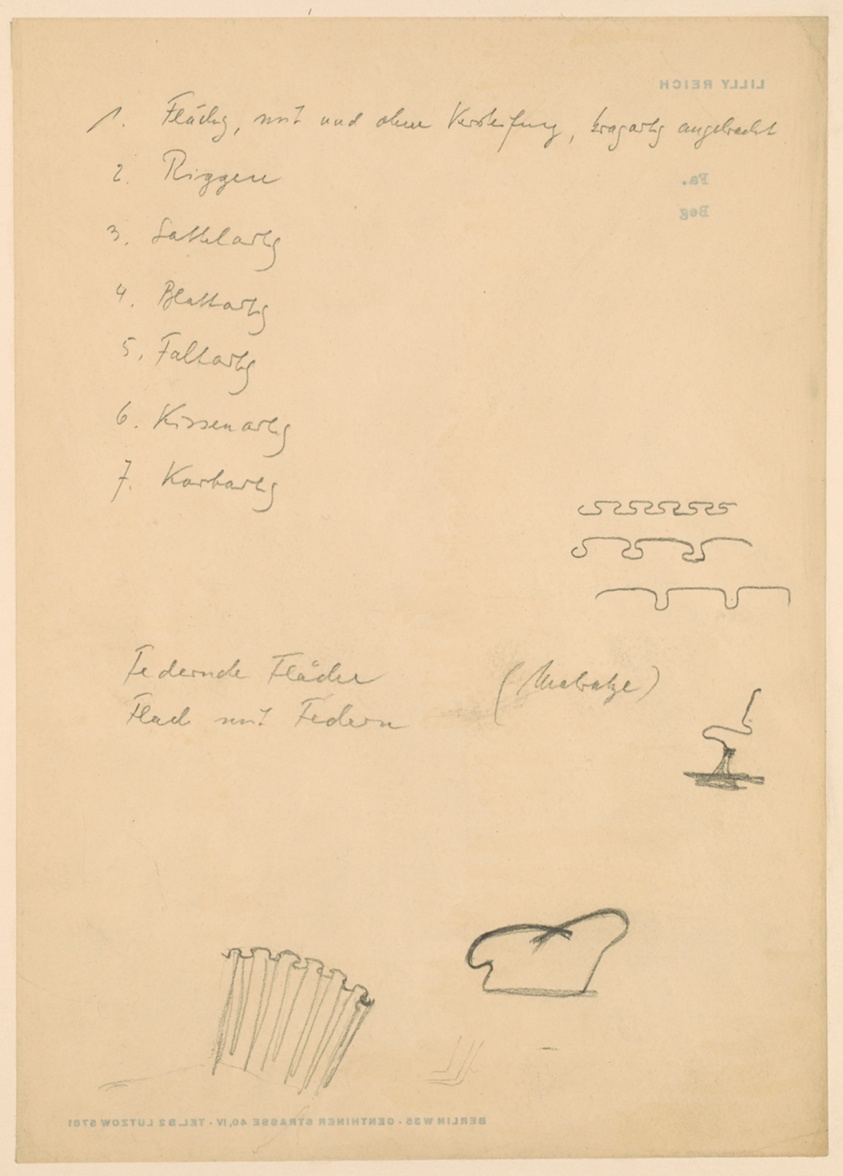 LILLY REICH
1. Flächig, mit und ohne Versteifung, angebracht
Fa.
2. Riggen
Beg
3. Sattelartig
4. Blattartig
5. Faltartig
6. Kissenartig
7. Korbartig
Federnde Fläche (Matratze)
Flach mit Federn
BERLIN W35 · GENTHINER STRASSE 40, IV · TEL. B2 LUTZOW 5781